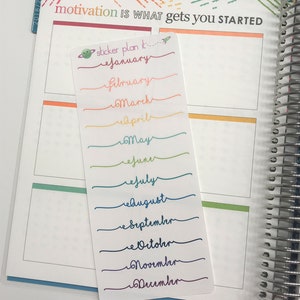 motivation IS WHAT gets you STARTED
sticker plan it
January
February
March
April
May
June
July
August
September
October
November
December